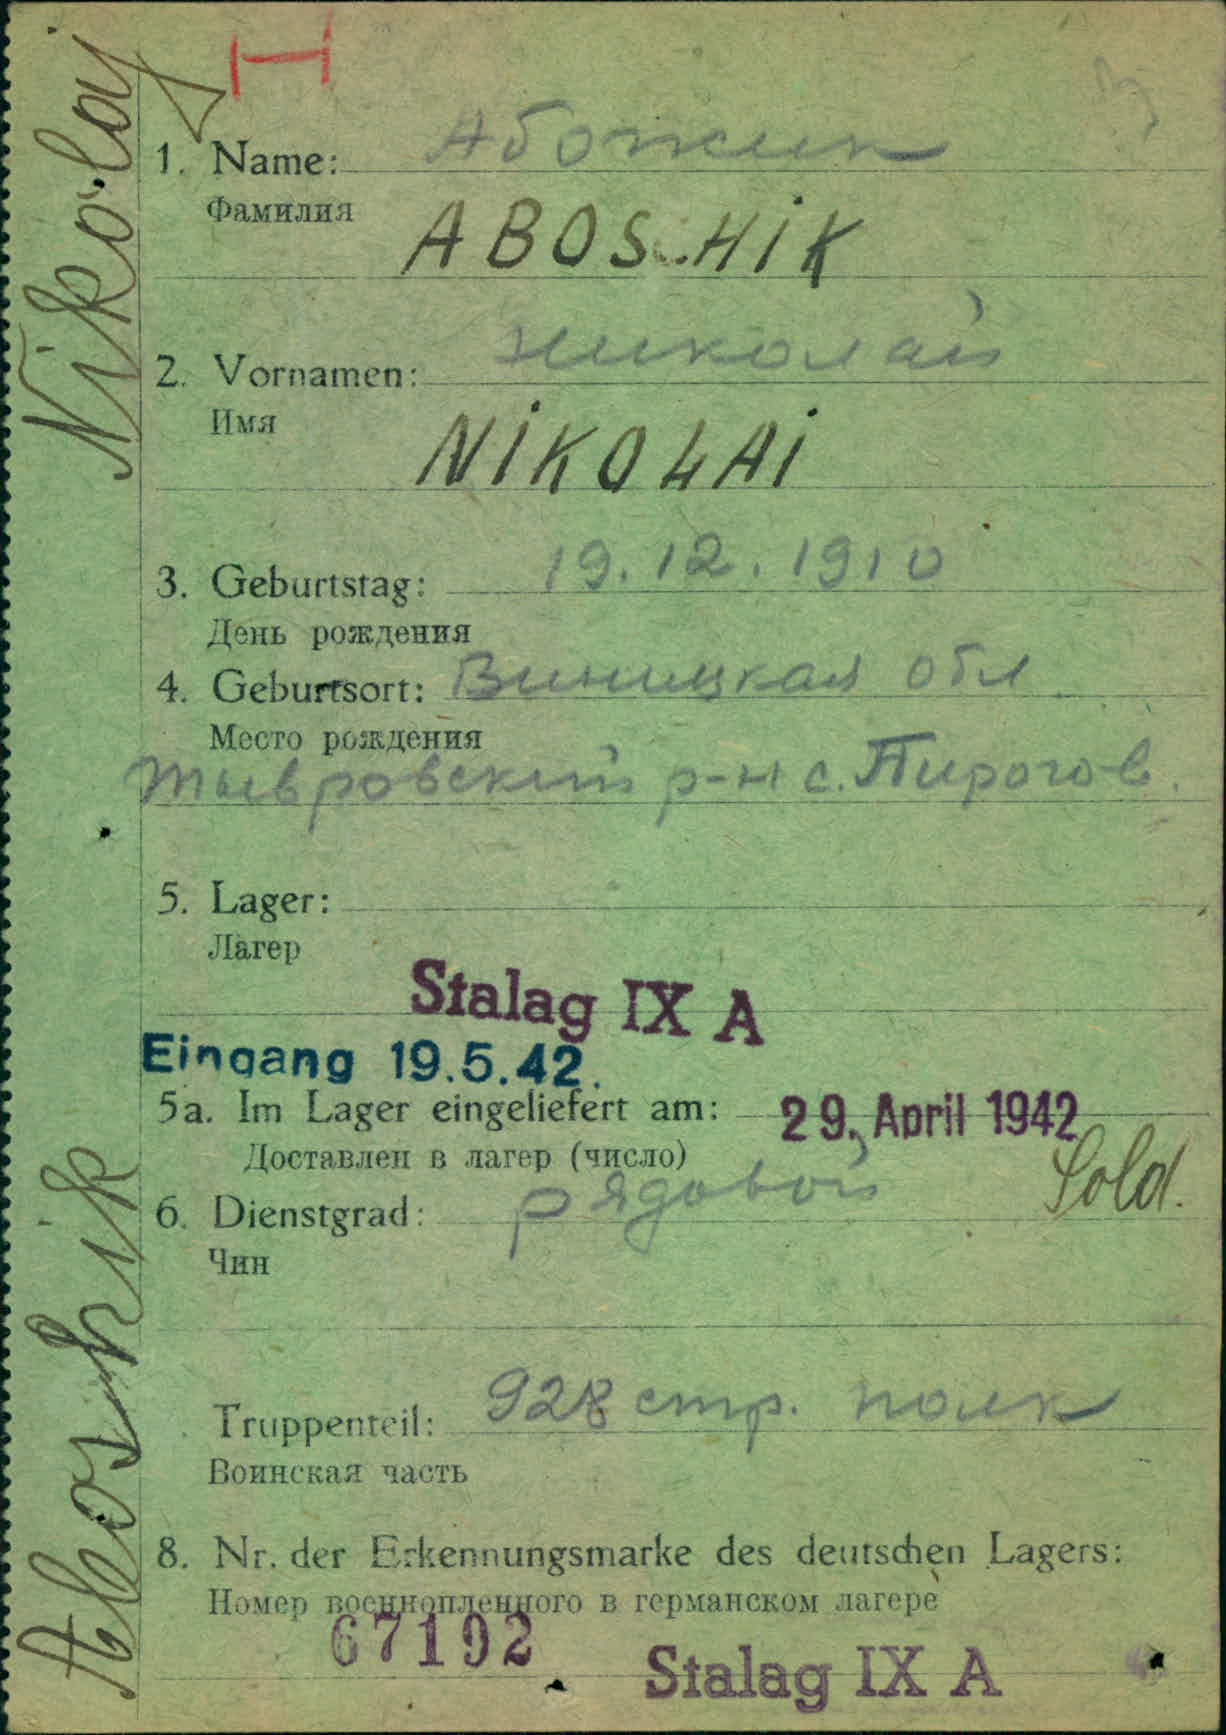 1. Name: Абожик
Фамилия
ABOSCHIK
2. Vornamen: николай
Имя
NIKOLAI
3. Geburtstag: 19.12.1910
День рождения
4. Geburtsort: Виницкая обл
Место рождения
тывровский р-н с. Пирогов.
5. Lager:
Лагер
Stalag IX A
Eingang 19.5.42.
5a. Im Lager eingeliefert am: 29. April 1942
Доставлен в лагер (число)
6. Dienstgrad: рядовой Sold.
Чин
Truppenteil: 928 стр. полк
Воинская часть
8. Nr. der Erkennungsmarke des deutschen Lagers:
Номер военнопленного в германском лагере
67192 Stalag IX A
Aboshik Nikolaj